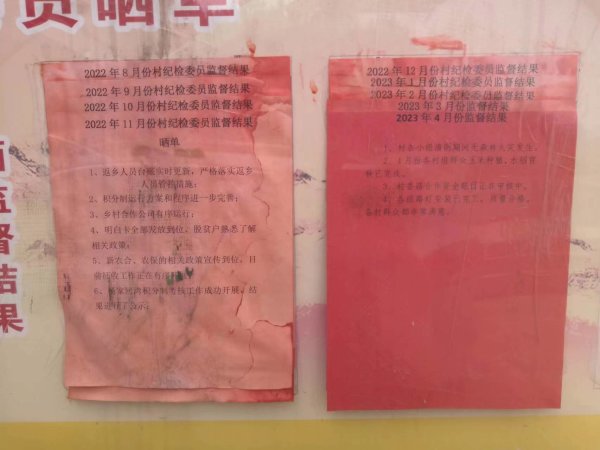 员晒单
监督结果
2022年8月份村纪检委员监督结果
2022年9月份村纪检委员监督结果
2022年10月份村纪检委员监督结果
2022年11月份村纪检委员监督结果
晒单
1、返乡人员台账实时更新，严格落实返乡
人员管控措施；
2、积分制运行方案和程序进一步完善；
3、乡村合作公司有序运行；
4、明白卡全部发放到位，脱贫户熟悉了解
相关政策；
5、新农合、农保的相关政策宣传到位，目
前征收工作正在有序
6、杨家河湾积分制考核工作成功开展，结
果进行了公示；
2022年12月份村纪检委员监督结果
2023年1月份村纪检委员监督结果
2023年2月份村纪检委员监督结果
2023年3月份监督结果
2023年4月份监督结果
1、村各小组清明期间无森林火灾发生。
2、1月份各村组群众玉米种植，水稻育
秧已完成。
3、
4、各组路灯安装已完工，质量合格，
各村群众都非常满意。